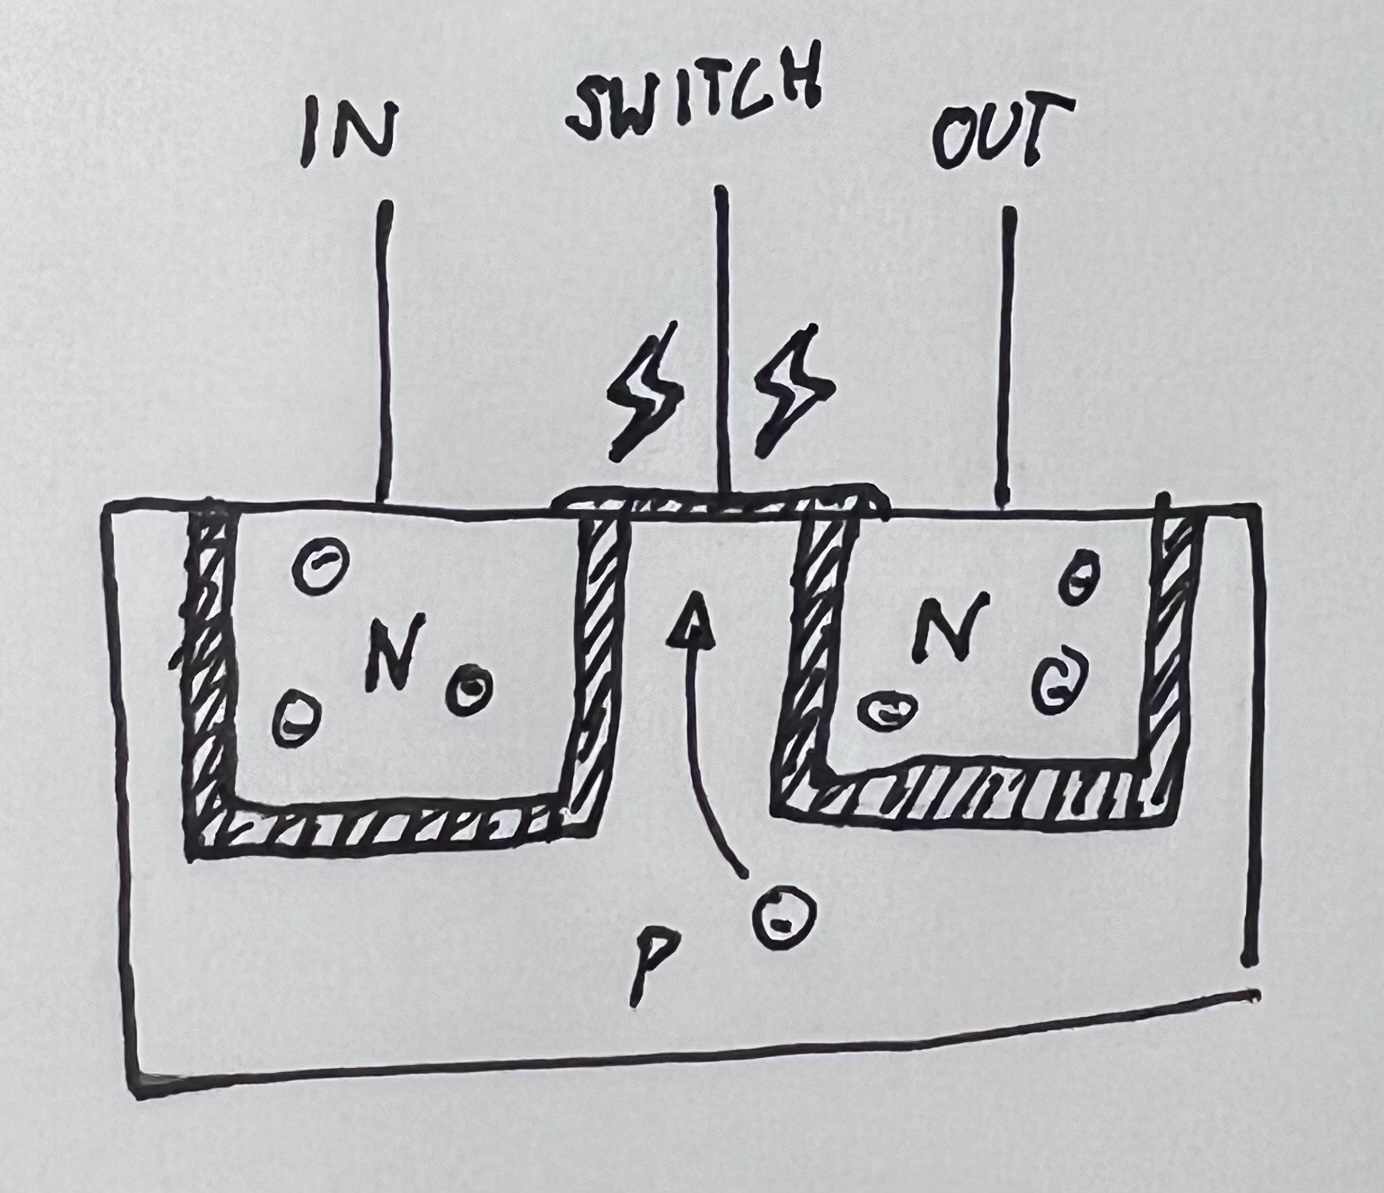 IN
SWITCH
OUT
N
N
P